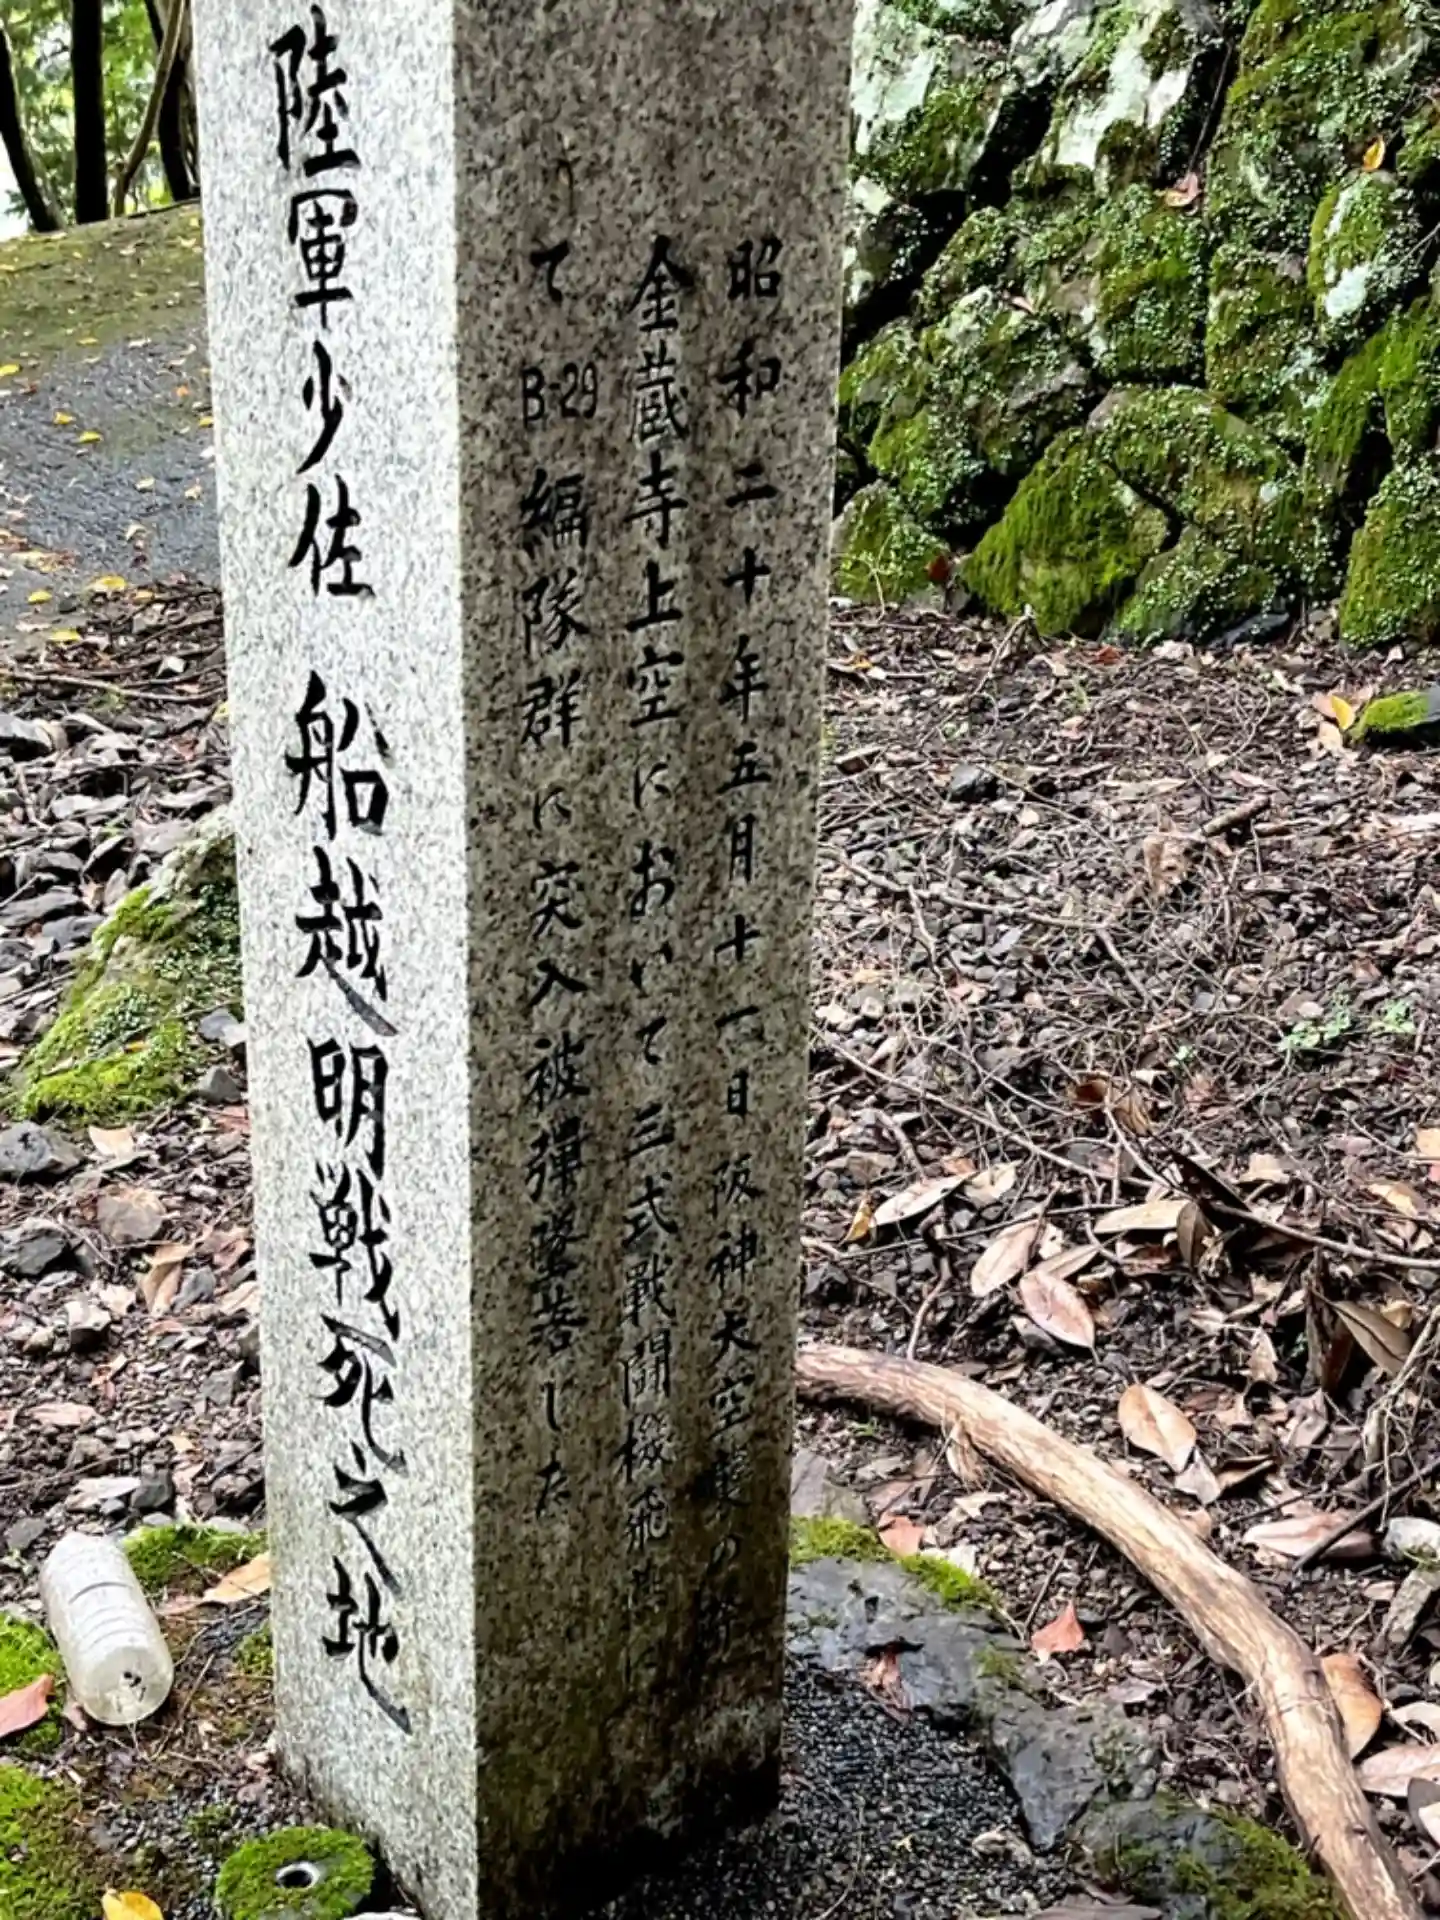 陸軍少佐 船越明戦死之地
昭和二十年五月十一日阪神大空襲の際
金蔵寺上空において三式戦闘機飛燕に
て B-29 編隊群に突入被弾墜落した